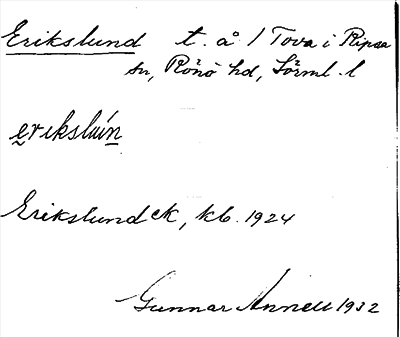 Erikslund t. å. / Tova i Ripsa
sn, Rönö hd, Sörml. l
erikslún
Erikslund ek, kb. 1924
Gunnar Annell 1932